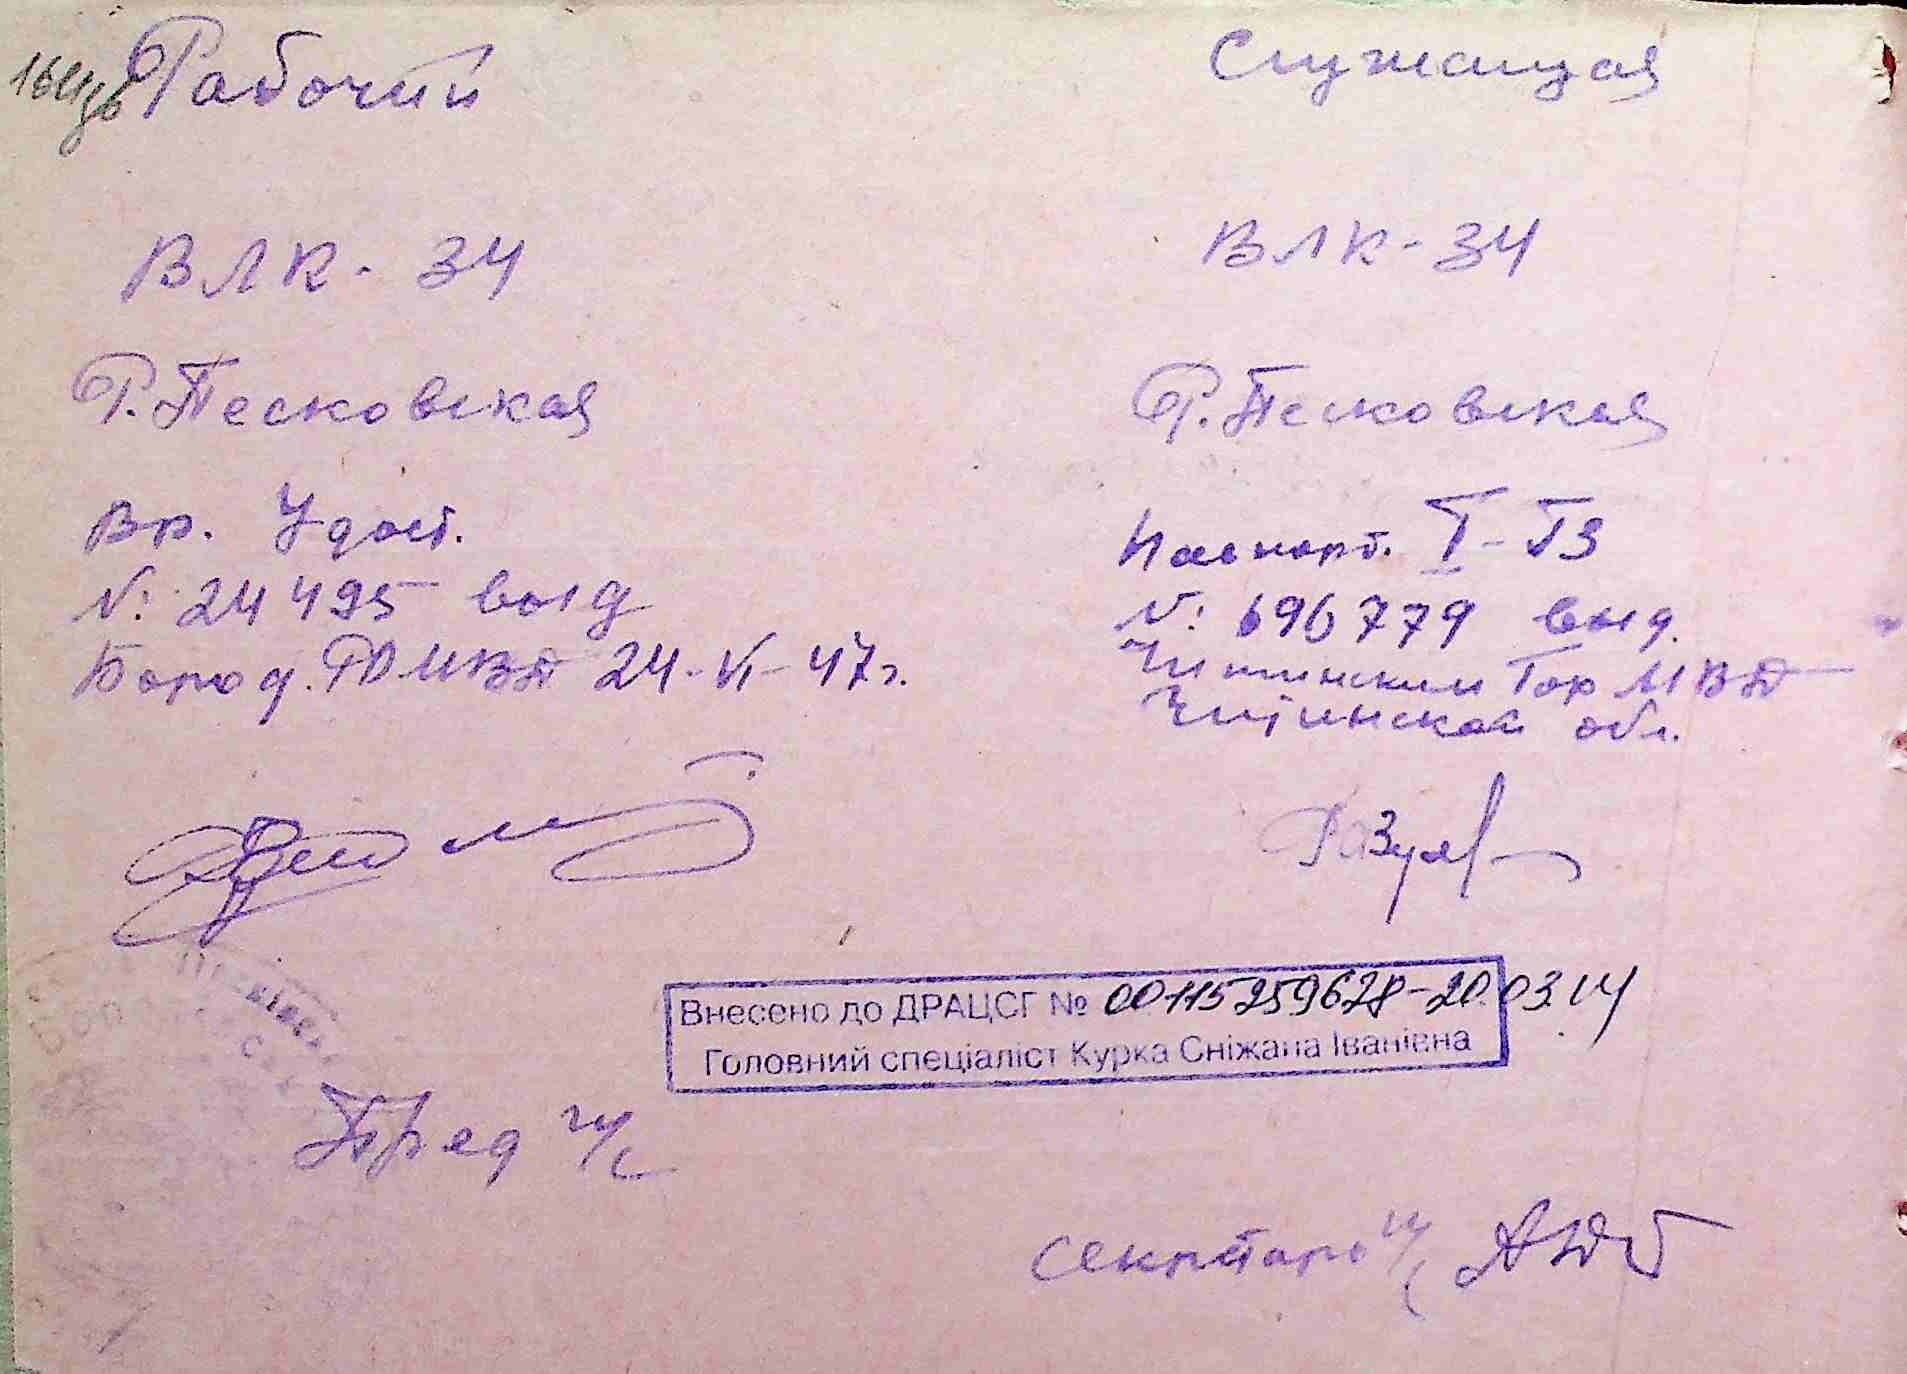 Рабочий
Служащая
ВЛК - 34
ВЛК - 34
Р. Песковская
Р. Песковская
Вр. Удост.
N: 24495 выд
Бород. РОМВД 24-VI-47г.
Паспорт. I-ТЗ
N: 696779 выд.
Читинским Гор МВД
Читинской обл.
Внесено до ДРАЦСГ № 00115259628-20.03.14
Головний спеціаліст Курка Сніжана Іванівна
Пред с/с
Секретарь с/с